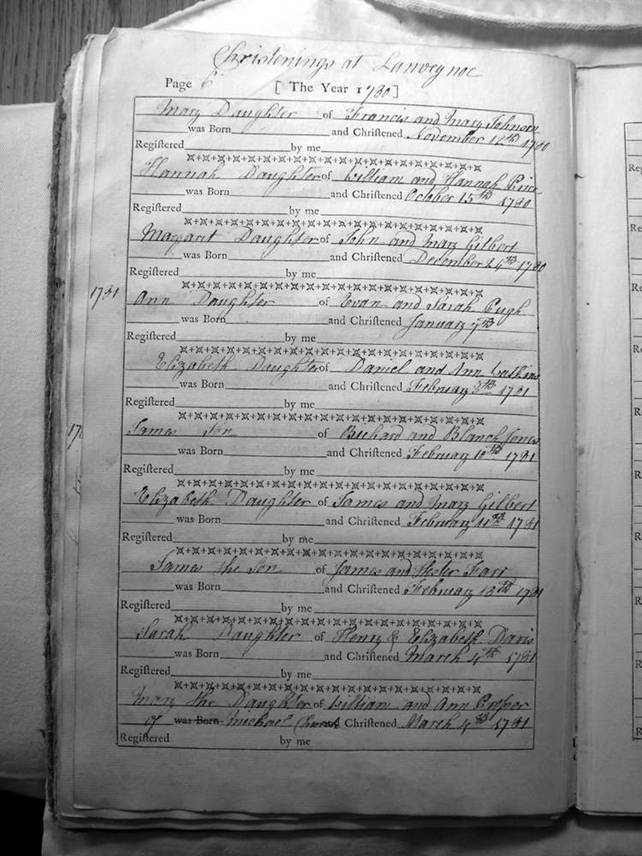 Christenings at Lanveynoc
Page 6 [ The Year 1780]
Mary Daughter of Francis and Mary Johnson
was Born and Chriſtened November 12th 1780
Regiſtered by me
Hannah Daughter of William and Hannah Price
was Born and Chriſtened October 15th 1780
Regiſtered by me
Margaret Daughter of John and Mary Gilbert
was Born and Chriſtened December 24th 1780
Regiſtered by me
1781 Ann Daughter of Evan and Sarah Pugh
was Born and Chriſtened January 7th
Regiſtered by me
Elizabeth Daughter of Daniel and Ann
was Born and Chriſtened February 1781
Regiſtered by me
17 James Son of Richard and Blanch Jones
was Born and Chriſtened February 10th 1781
Regiſtered by me
Elizabeth Daughter of James and Mary Gilbert
was Born and Chriſtened February 11th 1781
Regiſtered by me
James the Son of James and Hester Farr
was Born and Chriſtened February 1781
Regiſtered by me
Sarah Daughter of Henry & Elizabeth Davis
was Born and Chriſtened March 4th 1781
Regiſtered by me
Mary the Daughter of William and Ann Prosser
of was Born Michael Chriſtened March 4th 1781
Regiſtered by me